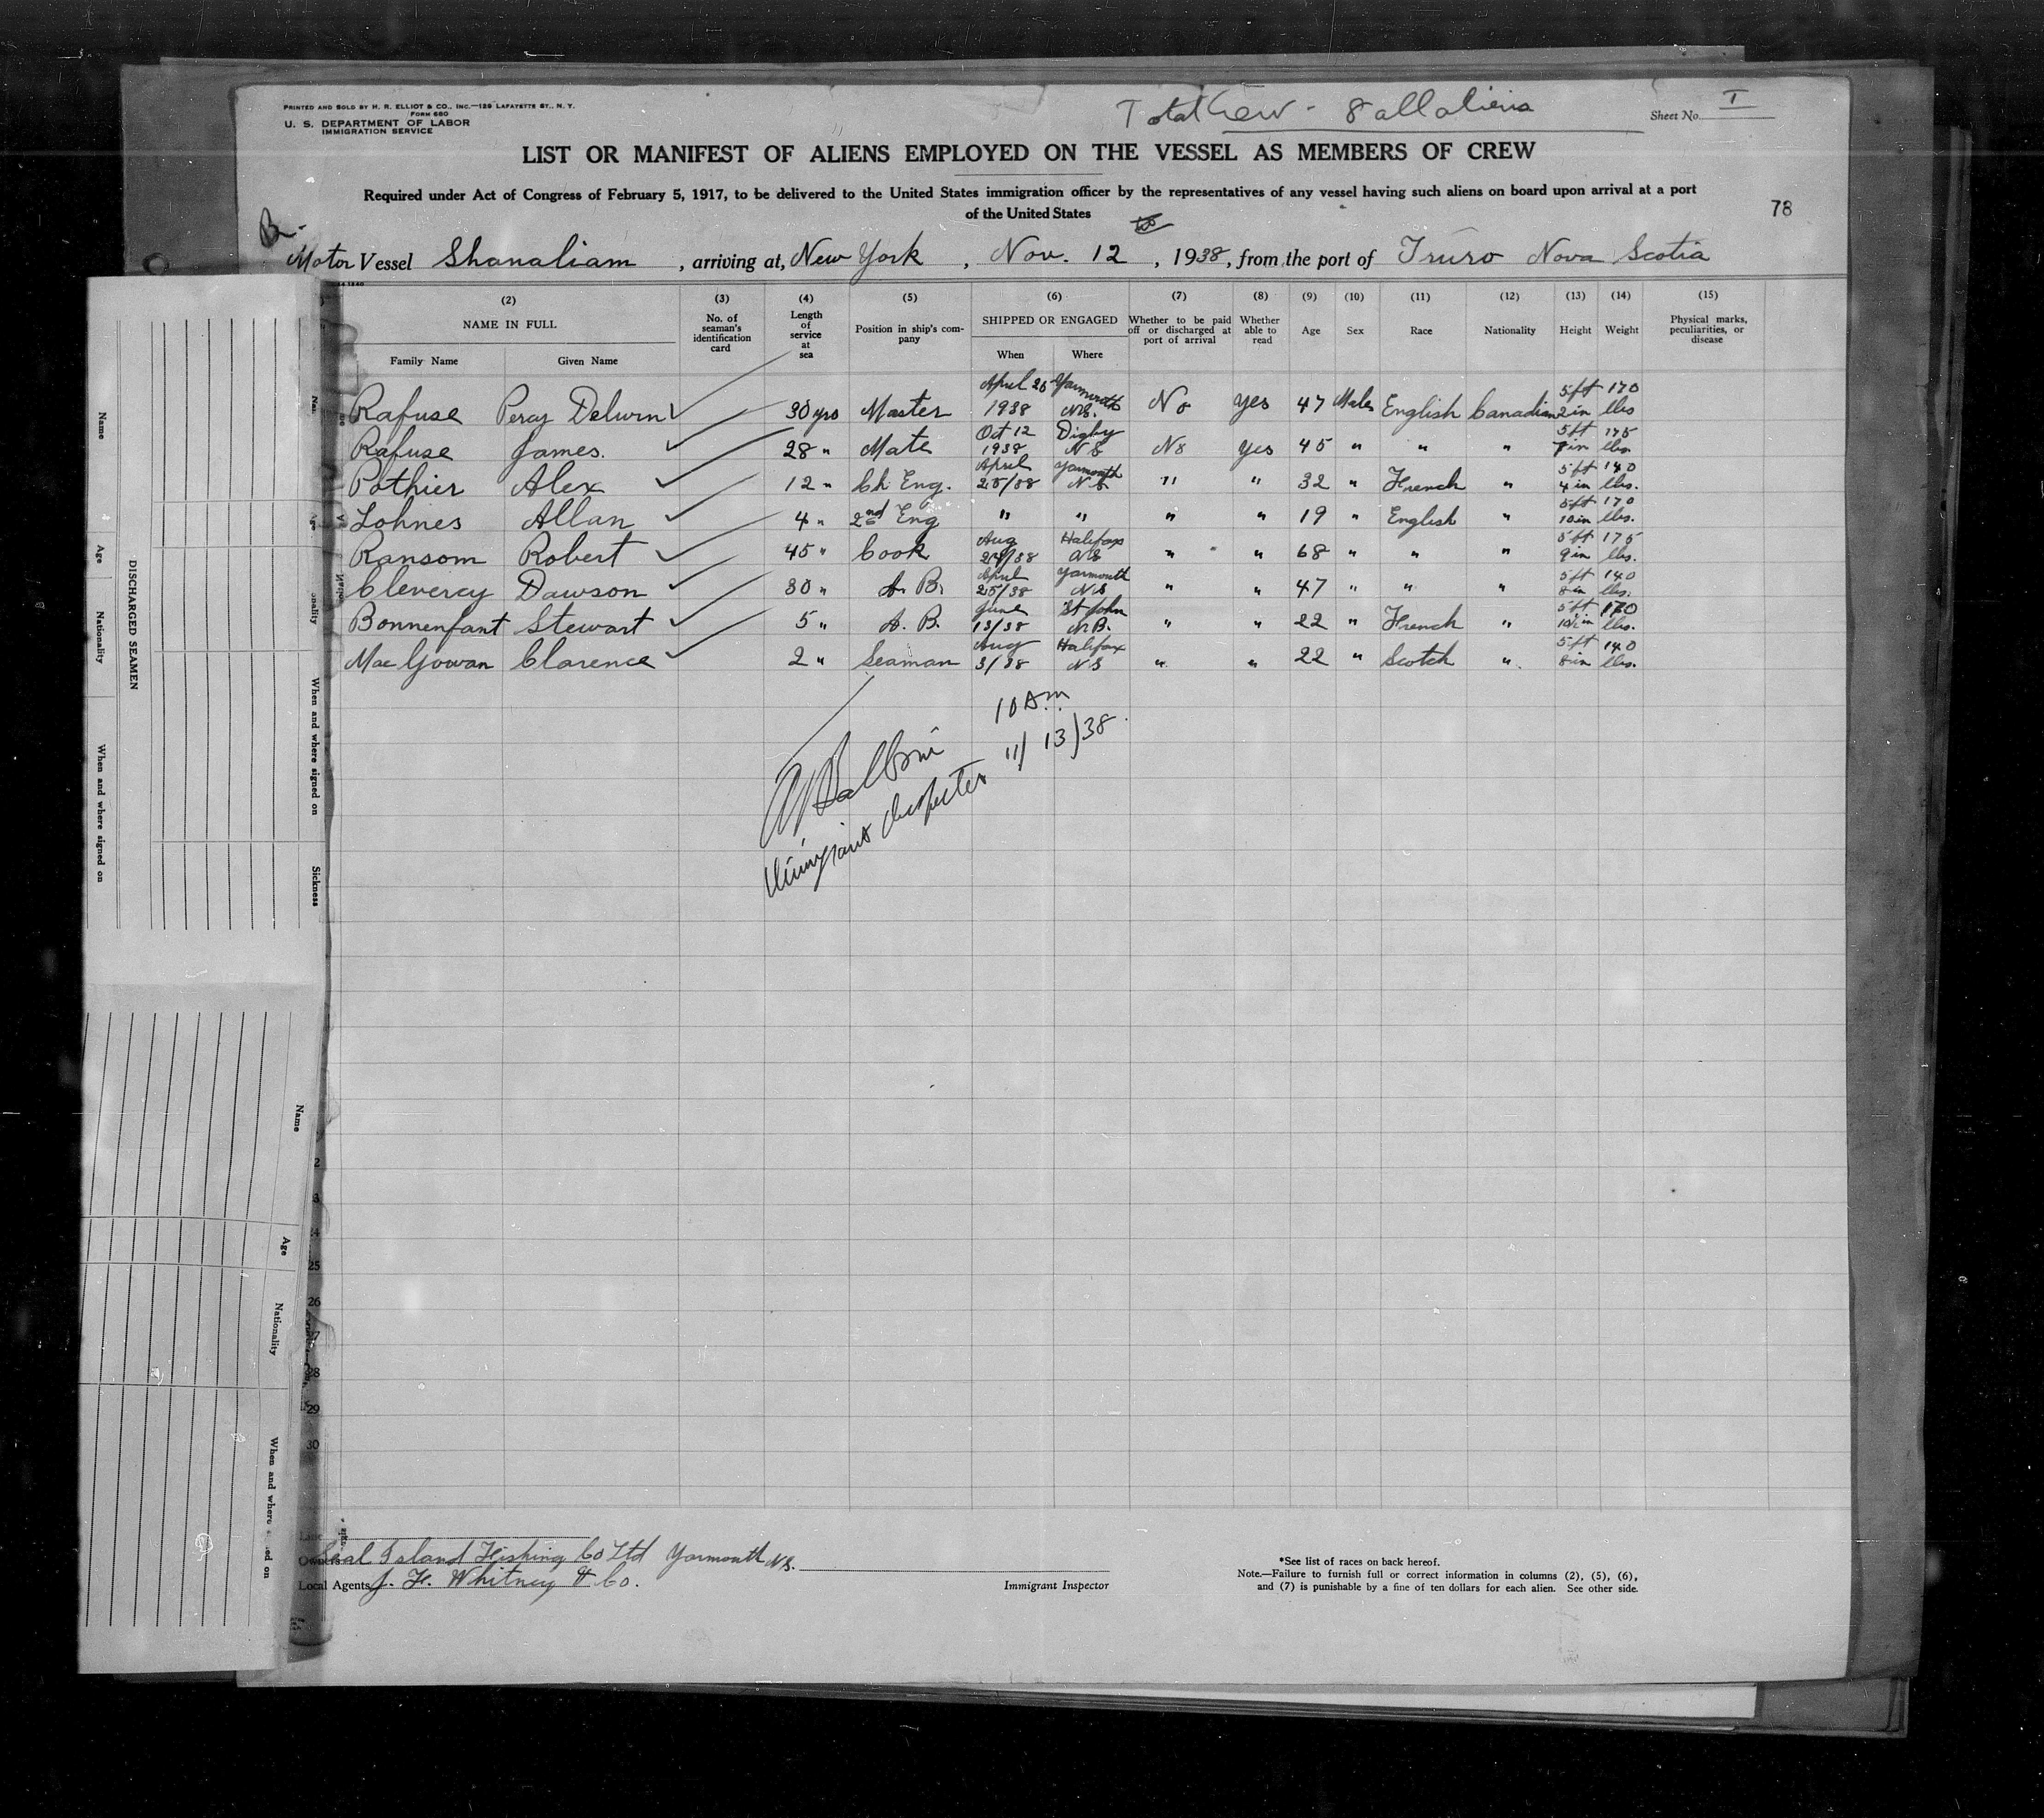 PRINTED AND SOLD BY H. R. ELLIOT & CO., INC.—129 LAFAYETTE ST., N. Y.
FORM 680
U. S. DEPARTMENT OF LABOR
IMMIGRATION SERVICE
Total Crew - 8 all aliens
Sheet No. I
LIST OR MANIFEST OF ALIENS EMPLOYED ON THE VESSEL AS MEMBERS OF CREW
Required under Act of Congress of February 5, 1917, to be delivered to the United States immigration officer by the representatives of any vessel having such aliens on board upon arrival at a port
of the United States
78
Br.
Motor Vessel Shanaliam, arriving at, New York, Nov. 12, 1938, from the port of Truro Nova Scotia
(2) (3) (4) (5) (6) (7) (8) (9) (10) (11) (12) (13) (14) (15)
NAME IN FULL No. of seaman's identification card Length of service at sea Position in ship's company SHIPPED OR ENGAGED Whether to be paid off or discharged at port of arrival Whether able to read Age Sex Race Nationality Height Weight Physical marks, peculiarities, or disease
Family Name Given Name When Where
Rafuse Percy Delwin 30 yrs Master April 25 1938 Yarmouth N.S. No yes 47 Male English Canadian 5 ft 2 in 170 lbs
Rafuse James. 28 " Mate Oct 12 1938 Digby N S No Yes 45 " " " 5 ft 7 in 175 lbs
Pothier Alex 12 " Ch Eng. April 25/38 Yarmouth N S " " 32 " French " 5 ft 4 in 140 lbs.
Lohnes Allan 4 " 2nd Eng " " " " 19 " English " 5 ft 10 in 170 lbs.
Ransom Robert 45 " Cook Aug 24/38 Halifax N S " " 68 " " " 5 ft 9 in 175 lbs.
Clevercy Dawson 30 " A. B. April 25/38 Yarmouth N S " " 47 " " " 5 ft 8 in 140 lbs.
Bonnenfant Stewart 5 " A. B. June 13/38 St John N.B. " " 22 " French " 5 ft 170 lbs.
Mac Gowan Clarence 2 " Seaman Aug 3/38 Halifax N S " " 22 " Scotch " 5 ft 8 in 140 lbs.
10 am
11/13/38.
Immigrant Inspector
DISCHARGED SEAMEN
Name
Age
Nationality
When and where signed on
When and where signed on
Sickness
Name
Age
Nationality
When and where
25
26
28
29
30
Owners Seal Island Fishing Co Ltd Yarmouth N.S.
Local Agents J. F. Whitney & Co.
Immigrant Inspector
*See list of races on back hereof.
Note.—Failure to furnish full or correct information in columns (2), (5), (6),
and (7) is punishable by a fine of ten dollars for each alien. See other side.